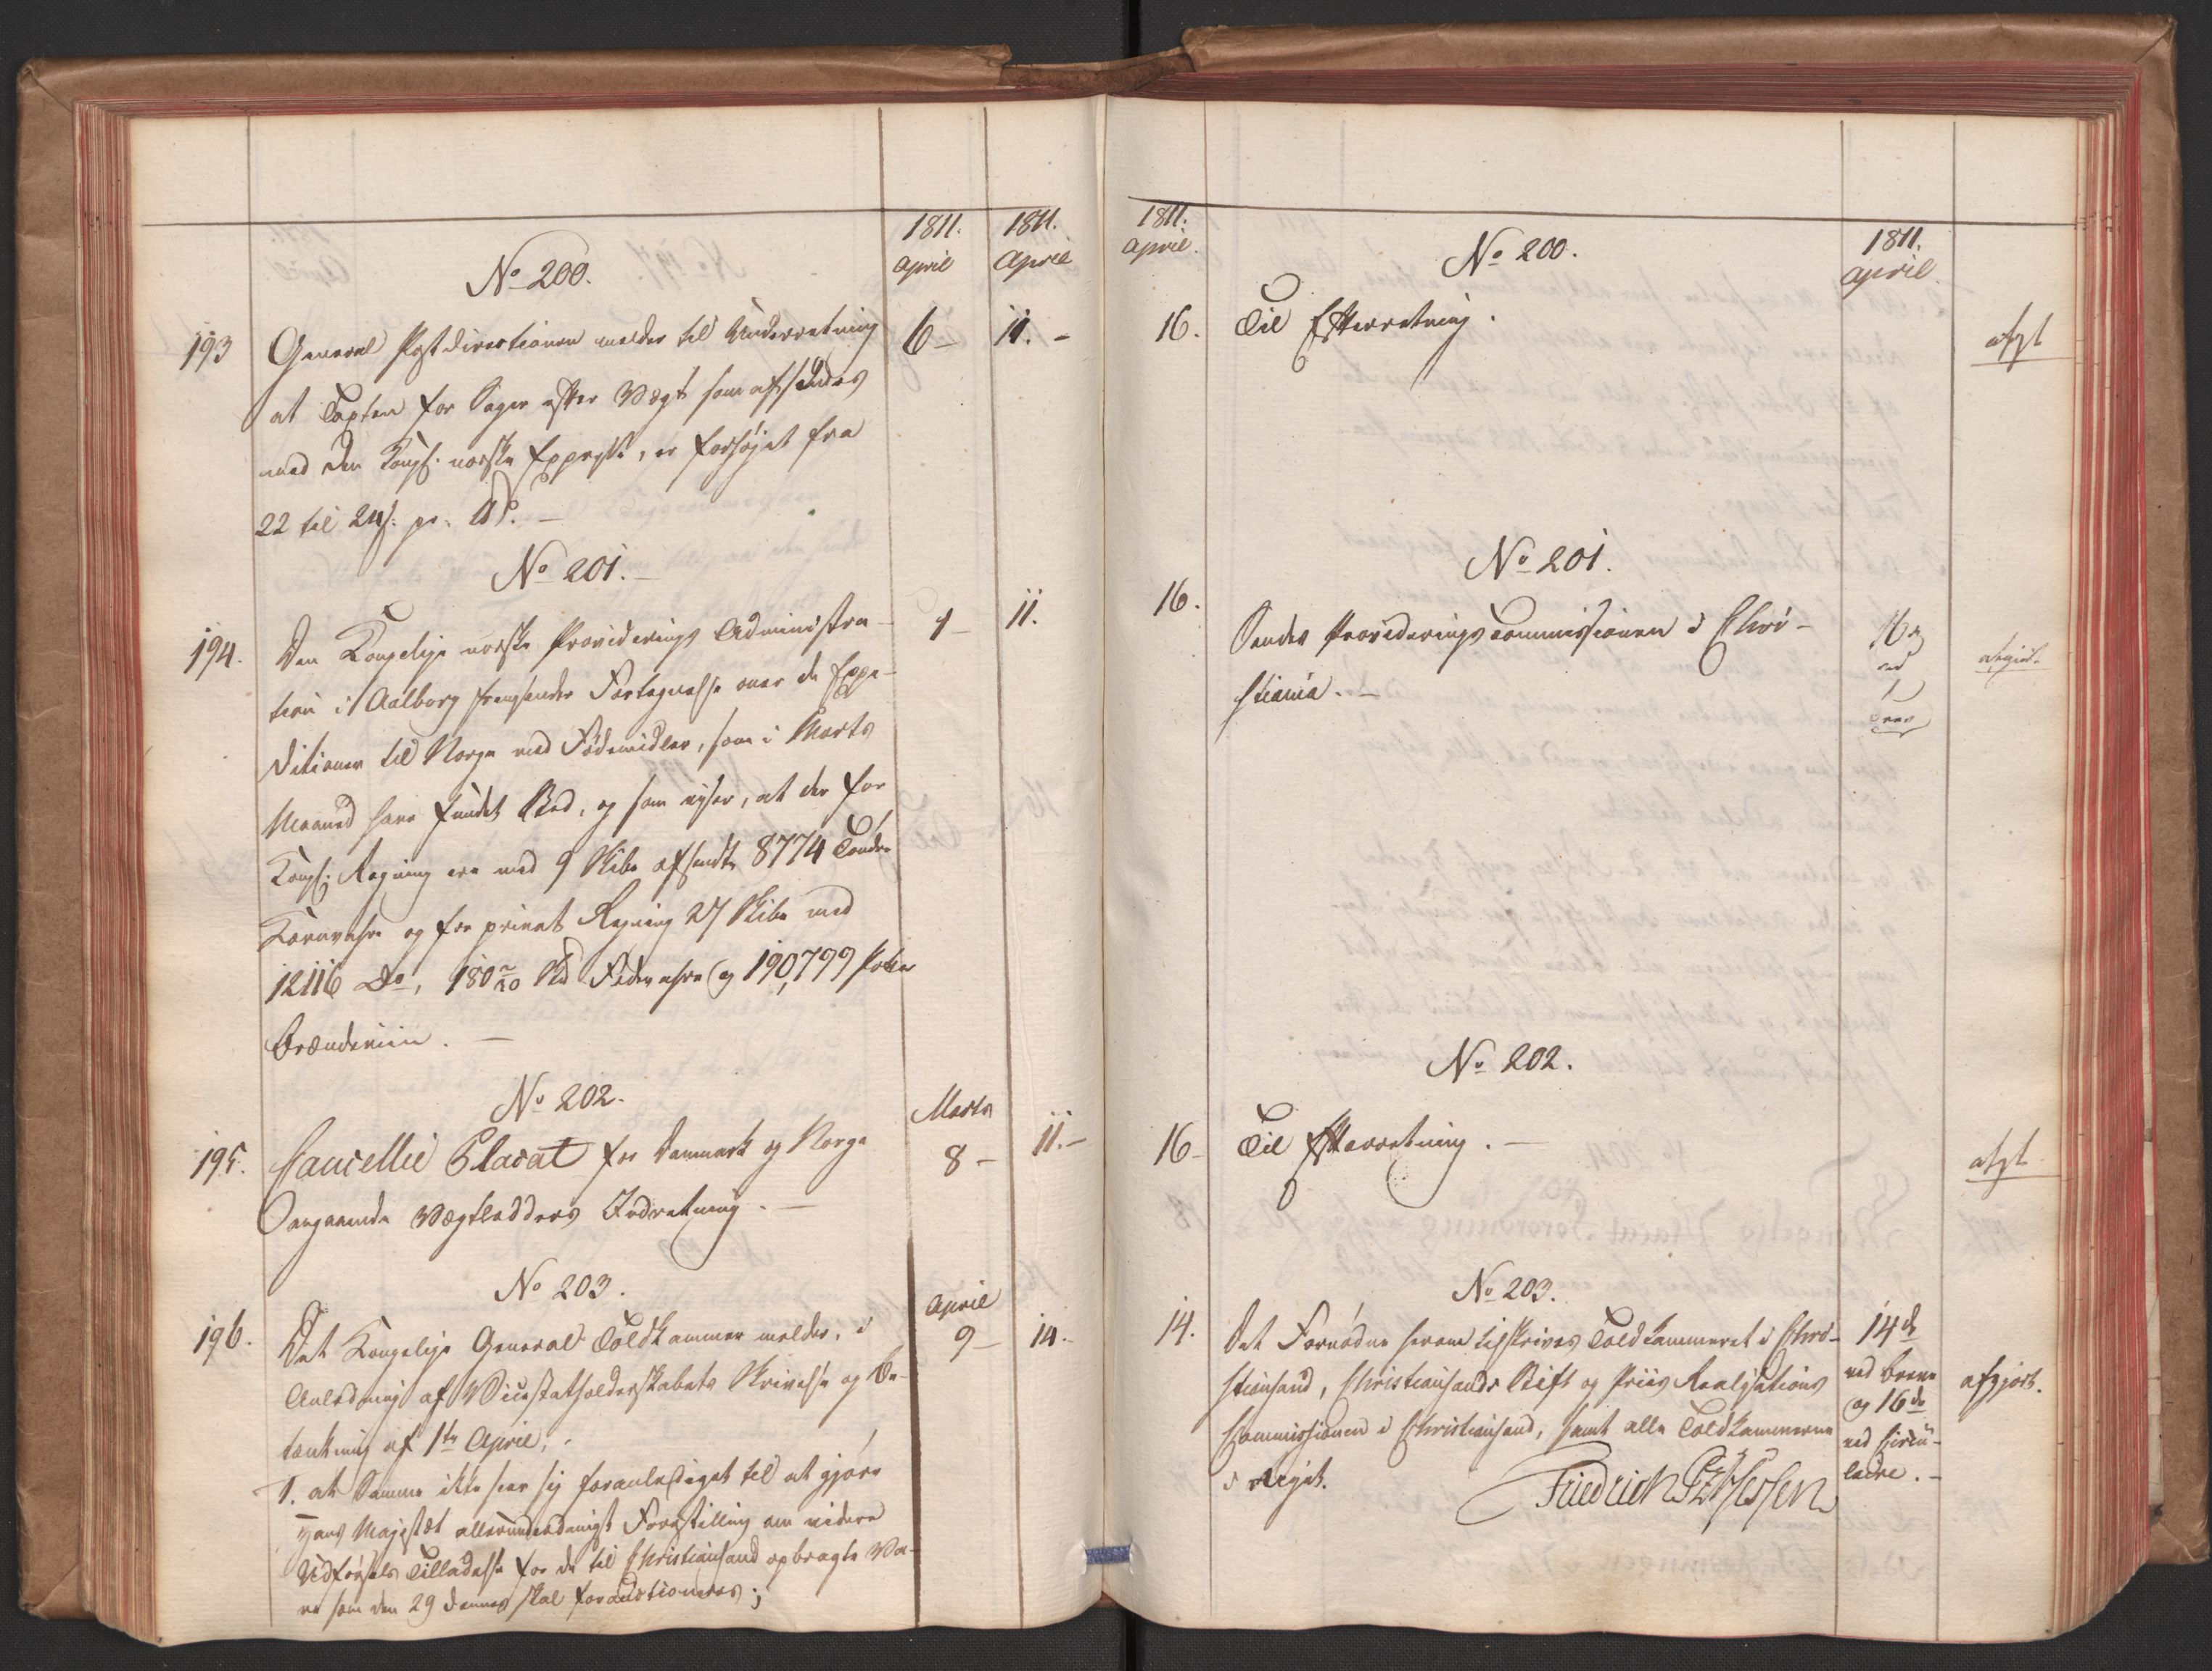 1811. 1811.
April April
No 200.
193 General Postdirectionen melder til Underretning 6 – 11. –
at Taxten for Sager efter Vægt som afsendes
med den Kongl. norske Expresse, er forhøjet fra
22 til 24 ß. pr. ℔. –
No 201. –
194. Den Kongelige norske Providerings Administra- 1 – 11.
tion i Aalborg fremsender Fortegnelse over de Expe-
ditioner til Norge med Födemidler, som i Marts
Maaned have fundet Sted, og som viser, at der for
Kongl. Regning ere med 9 Skibe afsendte 8774 Tønder
Kornvahre og for privat Regning 27 Skibe med
12116 Do, 180 Fedevahre og 190,799 Potter
Brændeviin. –
No 202. Marts
195. Cancellie Placat for Danmark og Norge 8 – 11. –
Angaaende Vægtlodders Indretning. –
No 203. April
196. Det Kongelige General Toldkammer melder, i 9 – 14. –
Anledning af Vicestatholderskabets Skrivelse og Be-
tænkning af 1te April,
1. at Samme ikke seer sig foranlediget til at gjøre
Hans Majestæt allerunderdanigst Forestilling om videre
Udförsels Tilladelse for de til Christiansand opbragte Va-
re som den 29 dennes skal forauctioneres;
1811. 1811.
April. April.
No 200.
16. Til Efterretning. afgt
No 201.
16. Sendes Provideringscommissionen i Chri- 16de
stiania. – ved
Brev
No 202.
16 – Til Efterretning. – afgt
No 203.
14. Det Fornødne herom tilskrives Toldkammeret i Chri- 14de
stiansand, Christiansands Stift og Priis Realisations ved Breve afgjort.
Commissionen i Christiansand, samt alle Toldkammerne og 16de
i Riget. ved Circu-
Friedrich PzHessen lære. –